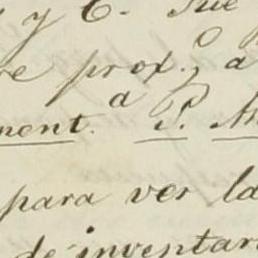 y C. Sue
re prox.º a
ment. a P. M
para ver la
de inventar